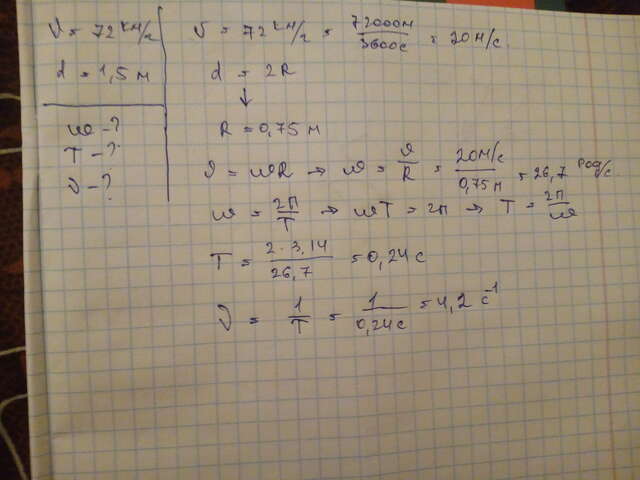 υ = 72 км/ч
d = 1,5 м
ω - ?
T - ?
ν - ?
υ = 72 км/ч = 72000м/3600с = 20 м/с.
d = 2R
↓
R = 0,75 м
υ = ωR → ω = υ/R = 20 м/с / 0,75 м = 26,7 рад/с.
ω = 2π/T → ωT = 2π → T = 2π/ω
T = 2·3,14/26,7 = 0,24 с
ν = 1/T = 1/0,24с = 4,2 с⁻¹